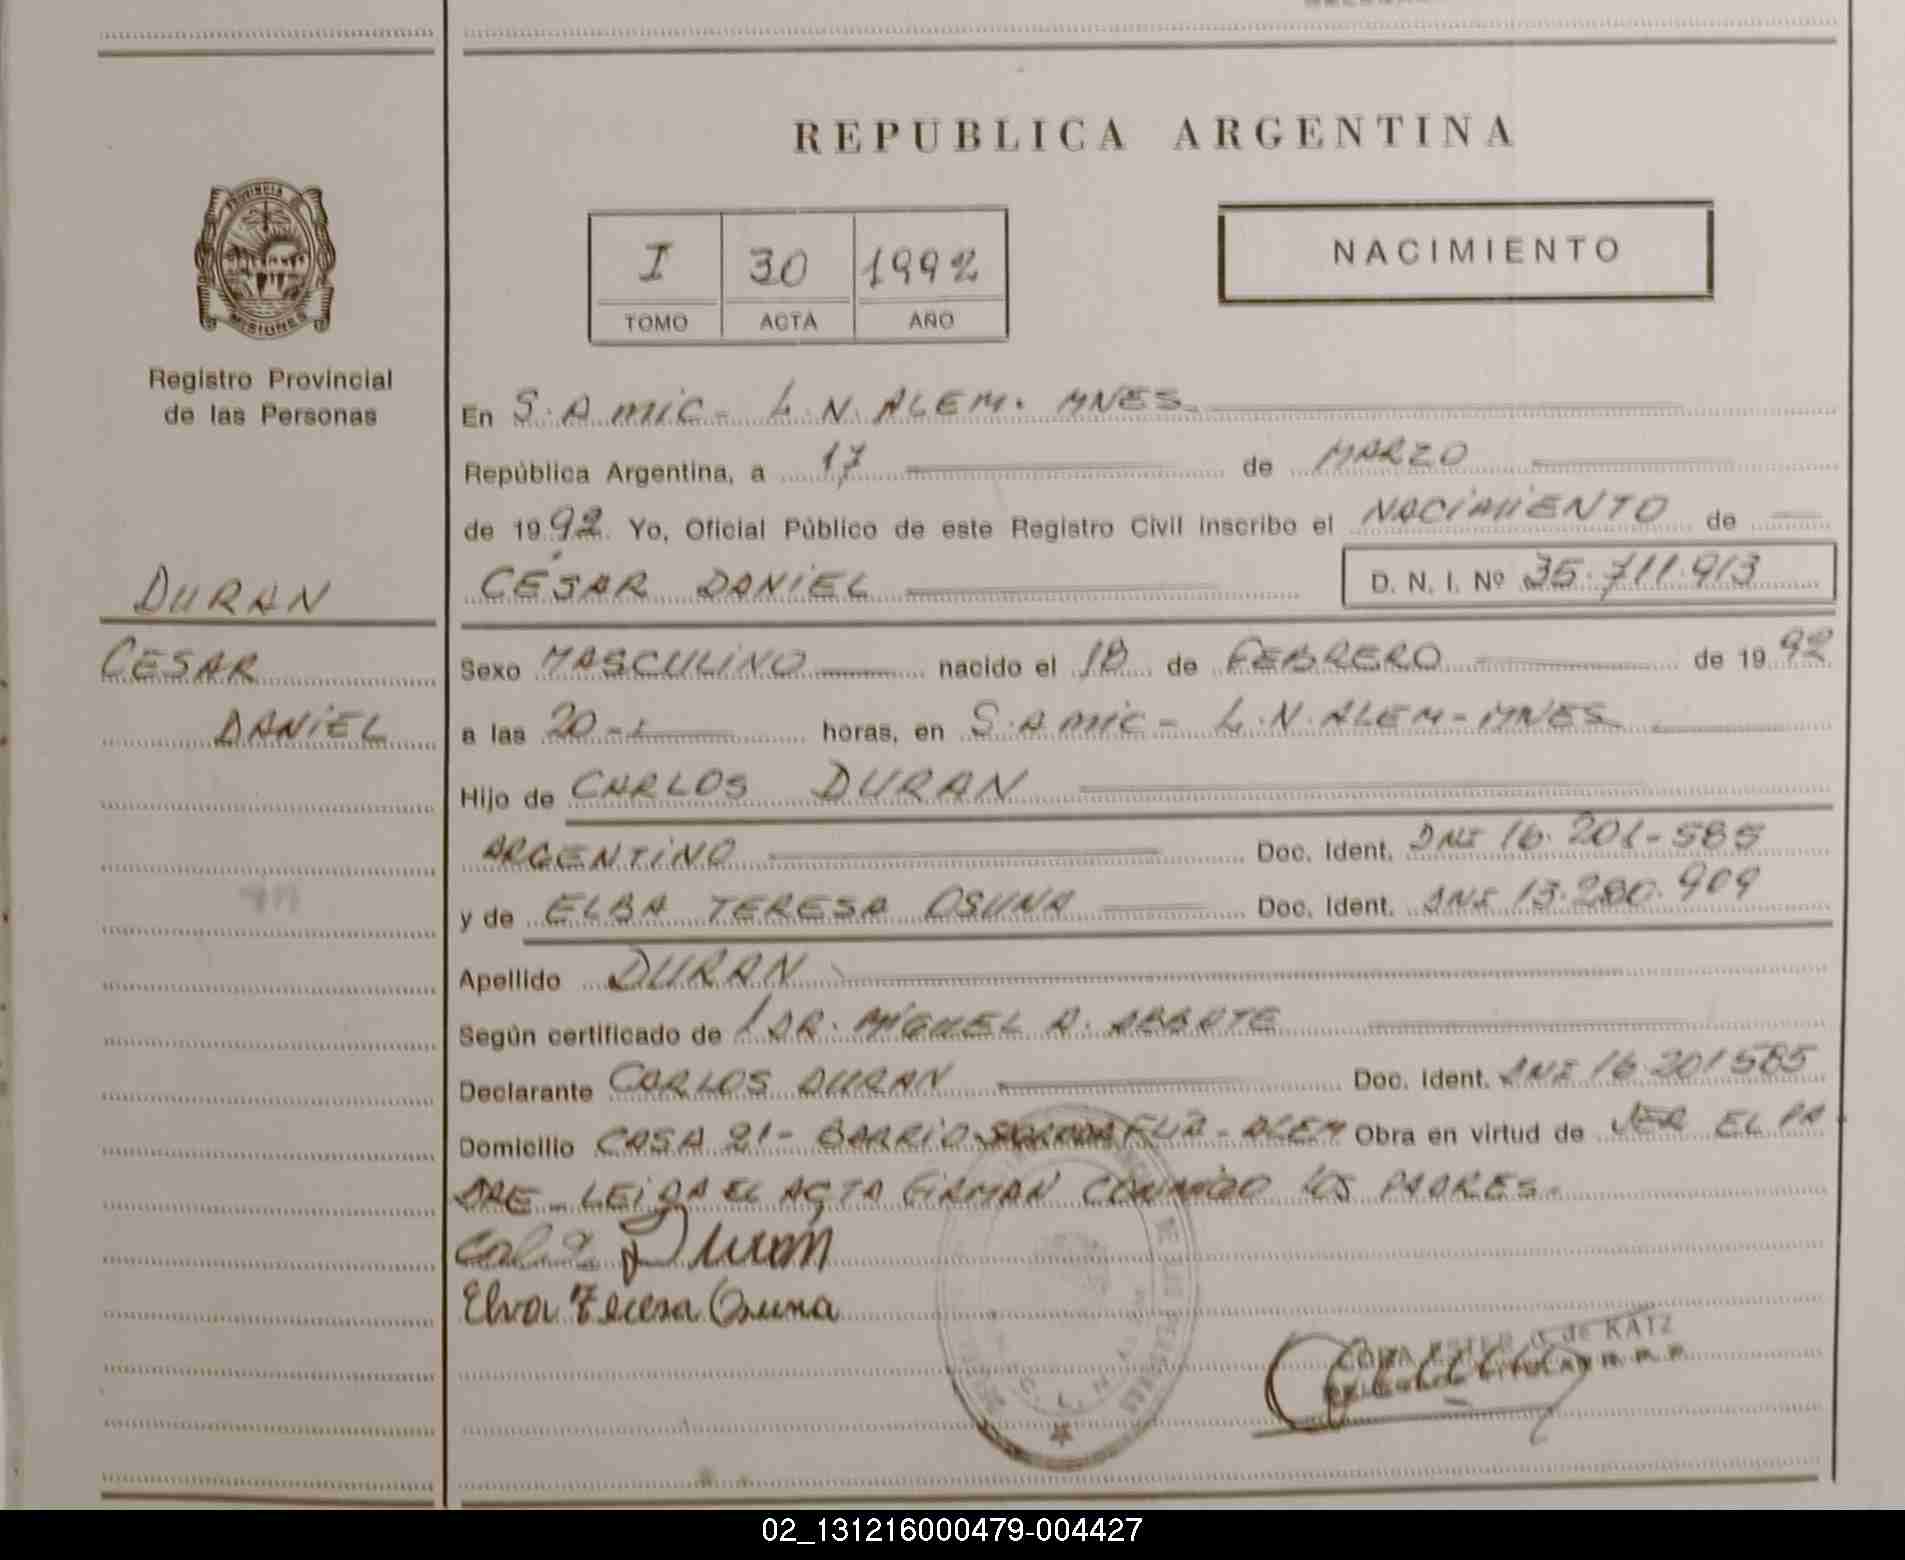 REPUBLICA ARGENTINA
PROVINCIA
MISIONES
Registro Provincial
de las Personas
I 30 1992
TOMO ACTA AÑO
NACIMIENTO
En S.A mic- L.N.ALEM. MNES-
República Argentina, a 17 de MARZO
de 1992. Yo, Oficial Público de este Registro Civil inscribo el NACIMIENTO de
CÉSAR DANIEL D. N. I. Nº 35.711.913
DURAN
CESAR
DANIEL
Sexo MASCULINO nacido el 18 de FEBRERO de 1992
a las 20- horas, en S.A mic- L.N.ALEM-MNES
Hijo de CARLOS DURAN
ARGENTINO Doc. Ident. DNI 16.201-585
y de ELBA TERESA OSUNA Doc. Ident. DNI 13.280.909
Apellido DURAN
Según certificado de DR. MIGUEL A. ABBATE
Declarante CARLOS DURAN Doc. Ident. DNI 16.201585
Domicilio CASA 21- BARRIO - ALEM Obra en virtud de SER EL PA
DRE - LEIDA EL ACTA FIRMAN CONMIGO LOS PADRES.
Duran
Elva Teresa Osuna
de KATZ
02_131216000479-004427